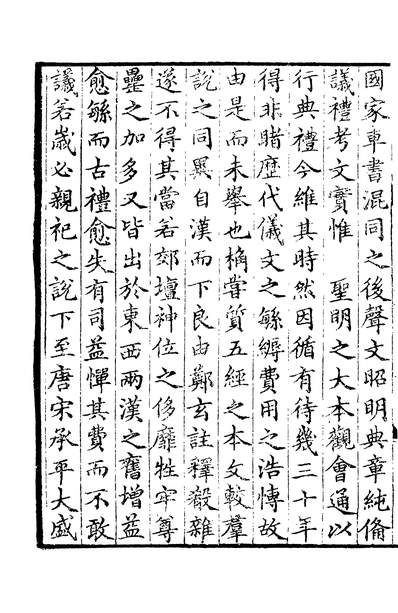 國家車書混同之後聲文昭明典章純備
議禮考文實惟 聖明之大本觀會通以
行典禮今維其時然因循有待幾三十年
得非睹歷代儀文之繇縟費用之浩慱故
由是而未舉也桷嘗質五經之本文較羣
說之同異自漢而下良由鄭玄註釋殽雜
遂不得其當若郊壇神位之侈靡牲牢尊
罍之加多又皆出於東西兩漢之舊增益
愈繇而古禮愈失有司益憚其費而不敢
議若歲必親祀之說下至唐宋承平大盛